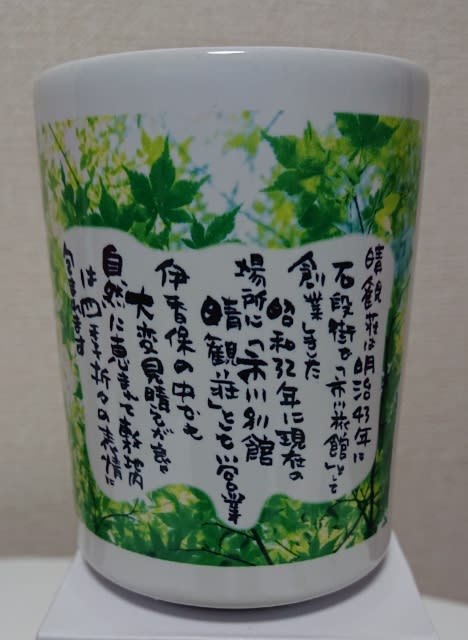 晴観荘は明治43年に
石段街で「市川旅館」として
創業しました
昭和32年に現在の
場所に「市川別館
晴観荘」として営業
伊香保の中でも
大変見晴らしが良く
自然に恵まれて
は四季折々の